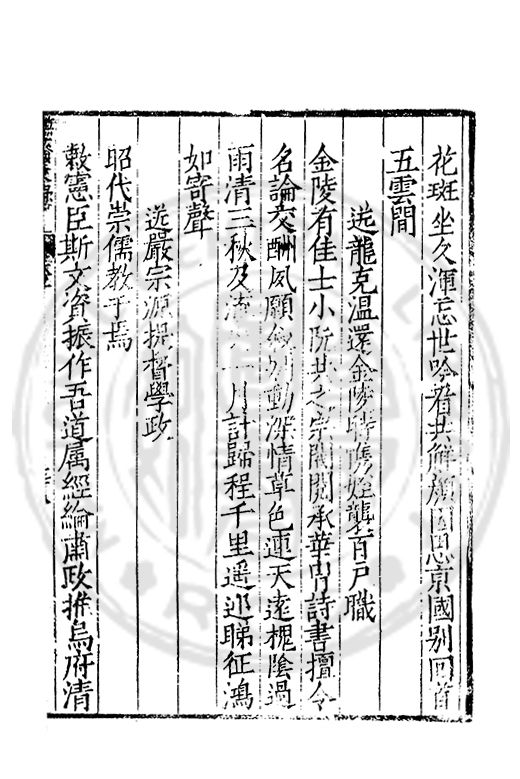 花斑坐久渾忘世吟看共解顏因思京國别回首
五雲間
送龍克溫還金陵時携姪襲百戶職
金陵有佳士小阮共之宗閥閱承華胄詩書擅令
名論交酬夙願別動深情草色連天遠槐陰過
雨清三秋及流月計歸程千里遥巡睇征鴻
如寄聲
送嚴宗源提督學政
昭代崇儒教于焉
敕憲臣斯文資振作吾道属經綸肅政推烏府清